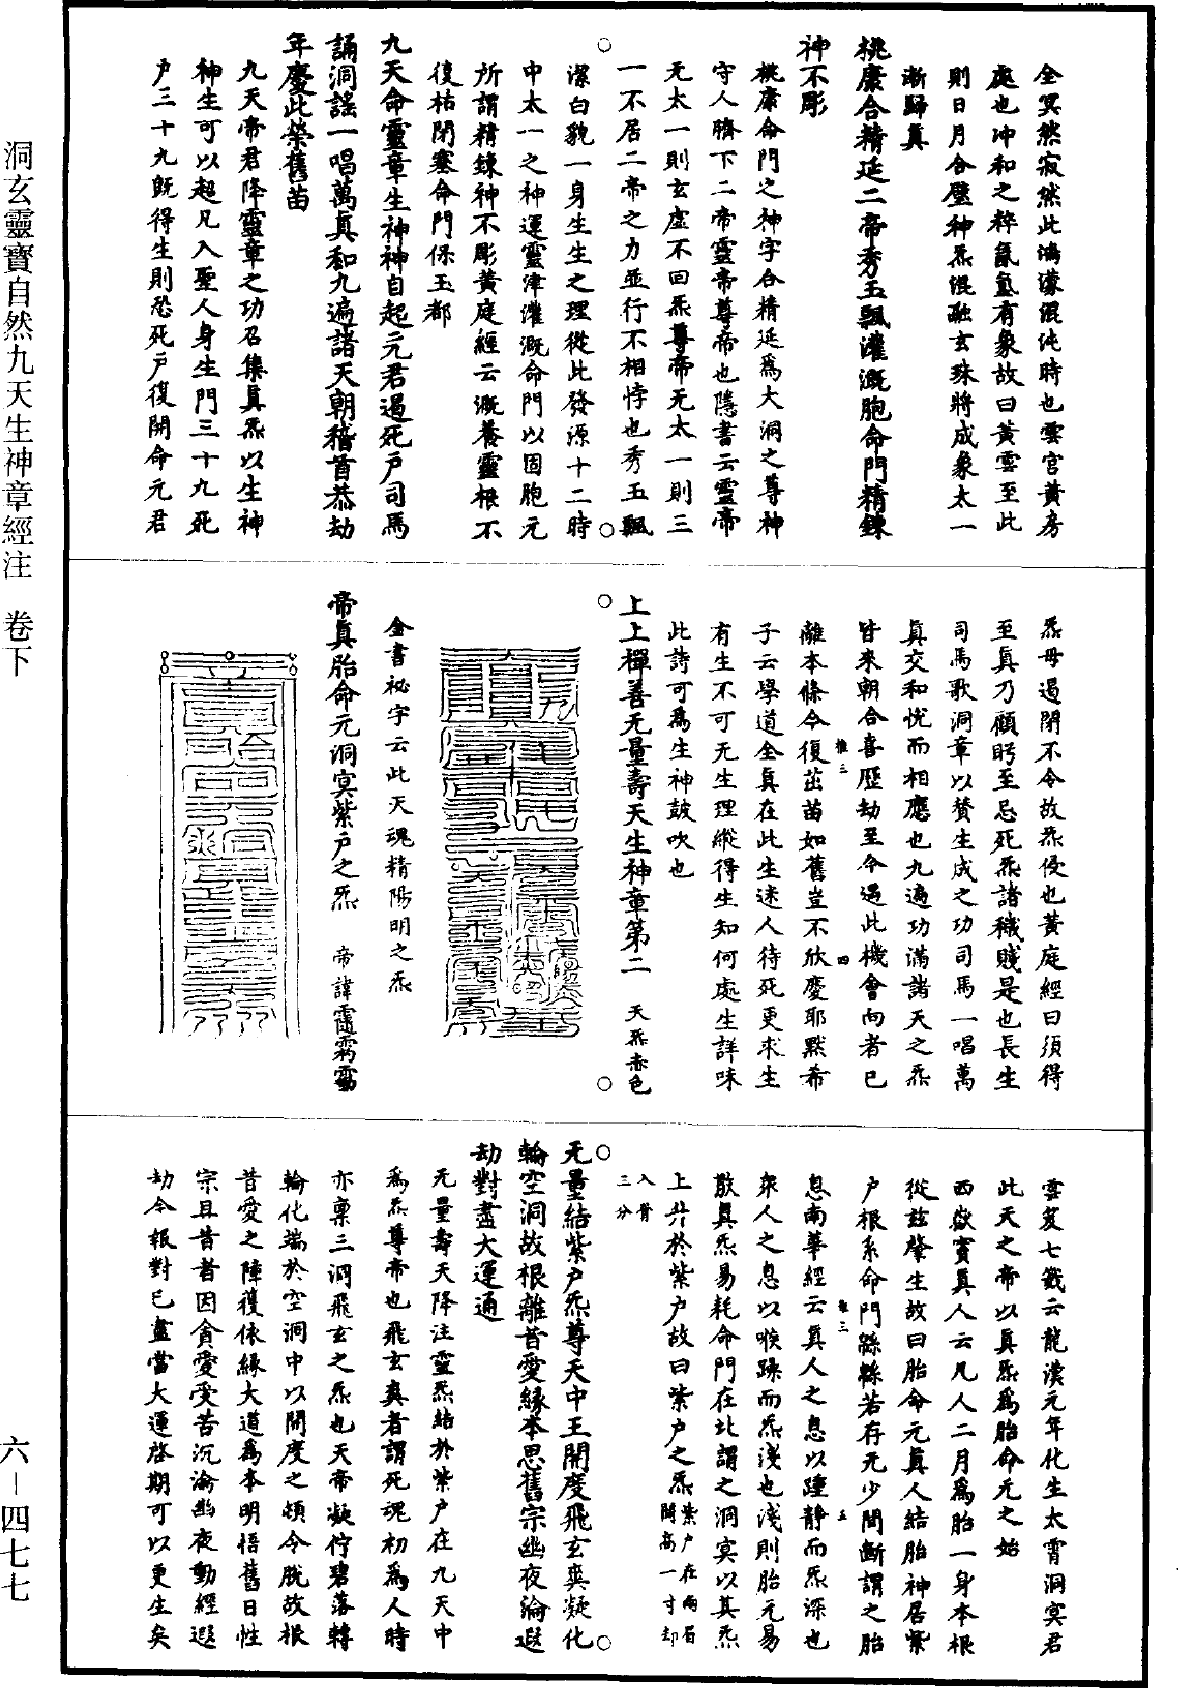 全冥然寂然此鴻濛混沌時也雲宮黃房
處也冲和之粹氤氳有象故曰黃雲至此
則日月合璧神炁混融玄珠將成象太一
漸歸真
桃康合精延二帝秀玉飄灌溉胞命門精鍊
神不彫
桃康命門之神字合精延爲大洞之尊神
守人臍下二帝靈帝尊帝也隱書云靈帝
无太一則玄虛不回炁尊帝无太一則三
一不居二帝之力並行不相悖也秀玉飄
潔白貌一身生生之理從此發源十二時
中太一之神運靈津灌溉命門以固胞元
所謂精鍊神不彫黃庭經云溉養靈根不
復枯閉塞命門保玉都
九天命靈章生神神自起元君遏死戶司馬
誦洞謠一唱萬真和九遍諸天朝稽首恭劫
年慶此榮舊苗
九天帝君降靈章之功召集真炁以生神
神生可以超凡入聖人身生門三十九死
戶三十九旣得生則恐死戶復開命元君
炁母遏閉不令故炁侵也黃庭經曰須得
至真乃顧眄至忌死炁諸穢賤是也長生
司馬歌洞章以贊生成之功司馬一唱萬
真交和悅而相應也九遍功滿諸天之炁
皆來朝合喜歷劫至今遇此機會向者已
離本條今復茁苗如舊豈不欣慶耶默希
子云學道全真在此生迷人待死更求生
有生不可无生理縱得生知何處生詳味
此詩可爲生神鼓吹也
上上禪善无量壽天生神章第二 天炁赤色
金書祕字云此天魂精陽明之炁
帝真胎命元洞冥紫戶之炁 帝諱
雲笈七籤云龍漢元年化生太霄洞冥君
此天之帝以真炁爲胎命元之始
西嶽竇真人云凡人二月爲胎一身本根
從兹肇生故曰胎命元真人結胎神居紫
戶根系命門緜緜若存无少間斷謂之胎
息南華經云真人之息以踵靜而炁深也
衆人之息以喉躁而炁淺也淺則胎元易
散真炁易耗命門在北謂之洞冥以其炁
上升於紫戶故曰紫戶之炁紫戶在兩眉間高一寸却
入骨三分
无量結紫戶炁尊天中王開度飛玄爽凝化
輪空洞故根離昔愛緣本思舊宗幽夜淪遐
劫對盡大運通
无量壽天降注靈炁結於紫戶在九天中
爲炁尊帝也飛玄爽者謂死魂初爲人時
亦稟三洞飛玄之炁也天帝凝佇碧落轉
輪化端於空洞中以開度之頓令脫故根
昔愛之障穫依緣大道爲本明悟舊日性
宗且昔者因貪愛受苦沉淪幽夜動經遐
劫今報對已盡當大運啓期可以更生矣
推三
四
推三
五
洞玄靈寶自然九天生神章經注 卷下
六－四七七